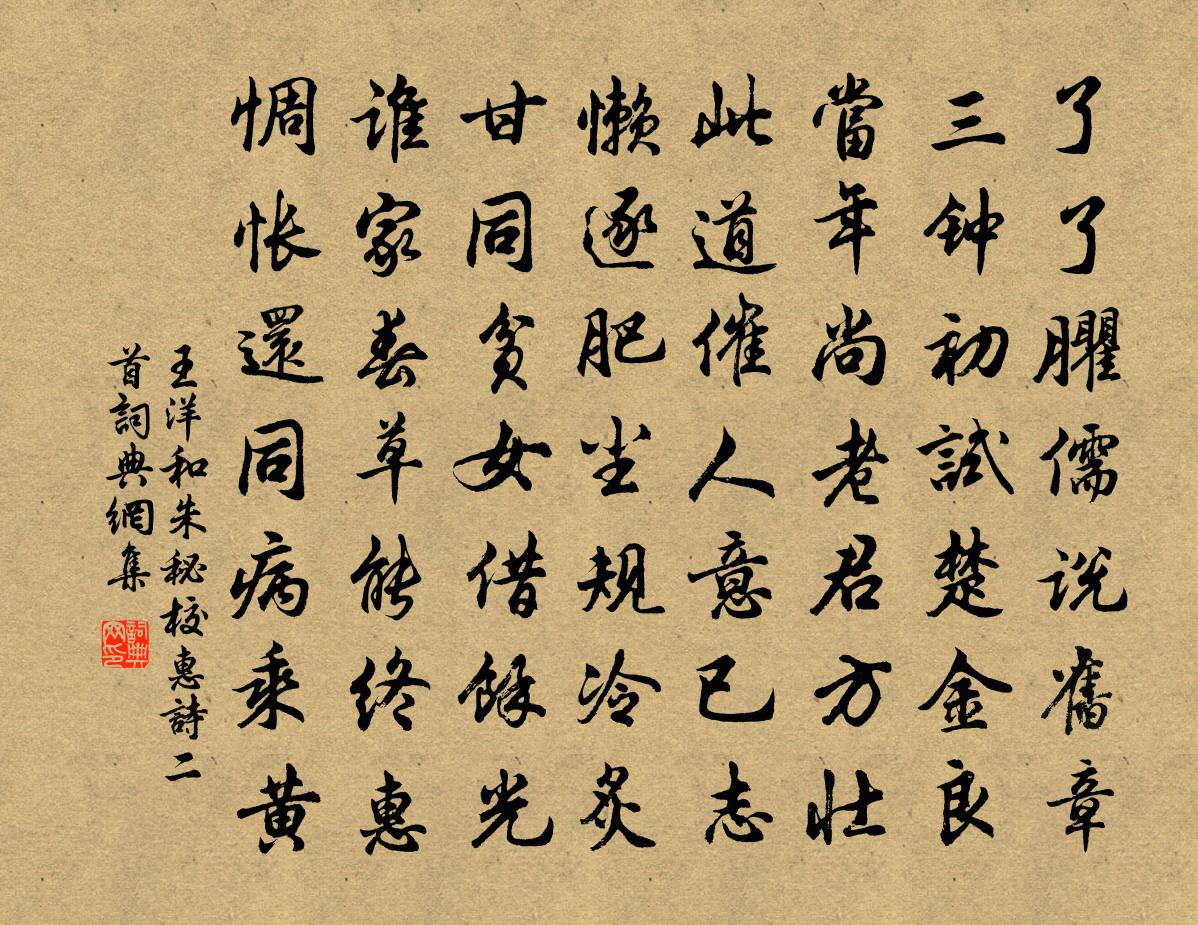 了了臞儒説舊章
三钟初試楚金良
當年尚老君方壯
此道催人意已志
懶逐肥尘規冷炙
甘同貧女借餘光
谁家春草能终惠
惆怅還同病乘黄
王洋和朱秘校惠詩二
首詞典網集
詞典
网印